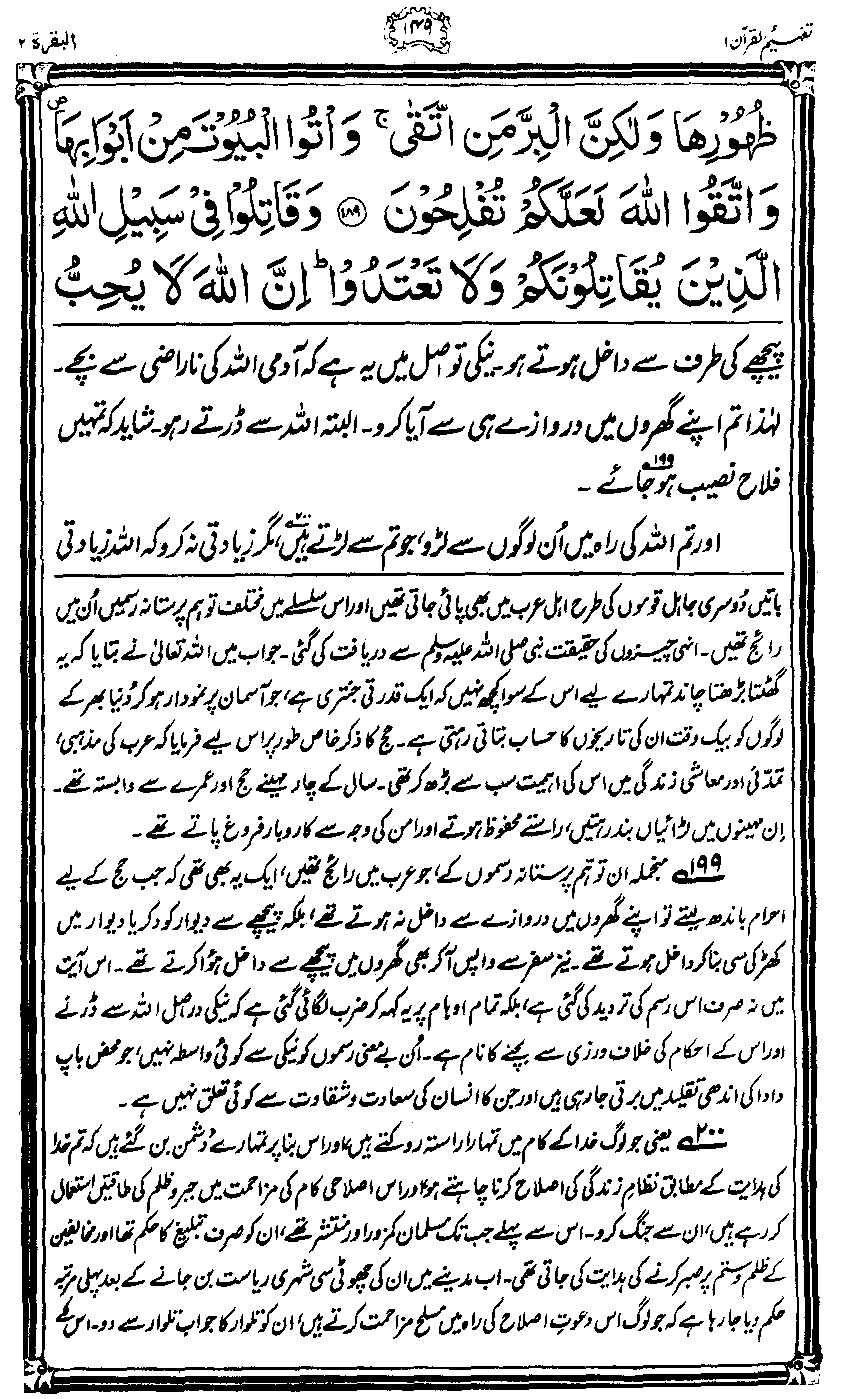 تفہیم القرآن ۱
۱۴۹
البقرة ۲
ظُهُوْرِهَا وَلٰكِنَّ الْبِرَّ مَنِ اتَّقٰى ۚ وَاْتُوا الْبُيُوْتَ مِنْ اَبْوَابِهَا ۪
وَاتَّقُوا اللّٰهَ لَعَلَّكُمْ تُفْلِحُوْنَ ﴿۱۸۹﴾ وَقَاتِلُوْا فِيْ سَبِيْلِ اللّٰهِ
الَّذِيْنَ يُقَاتِلُوْنَكُمْ وَلَا تَعْتَدُوْا ؕ اِنَّ اللّٰهَ لَا يُحِبُّ
پیچھے کی طرف سے داخل ہوتے ہو۔ نیکی تو اصل میں یہ ہے کہ آدمی اللہ کی ناراضی سے بچے۔
لہٰذا تم اپنے گھروں میں دروازے ہی سے آیا کرو۔ البتہ اللہ سے ڈرتے رہو۔ شاید کہ تمہیں
فلاح نصیب ہو جائے ۱۹۹۔
اور تم اللہ کی راہ میں اُن لوگوں سے لڑو، جو تم سے لڑتے ہیں ۲۰۰، مگر زیادتی نہ کرو کہ اللہ زیادتی
باتیں دُوسری جاہل قوموں کی طرح اہل عرب میں بھی پائی جاتی تھیں اور اس سلسلے میں مختلف توہم پرستانہ رسمیں اُن میں
رائج تھیں۔ انہی چیزوں کی حقیقت نبی صلی اللہ علیہ وسلم سے دریافت کی گئی۔ جواب میں اللہ تعالیٰ نے بتایا کہ یہ
گھٹتا بڑھتا چاند تمہارے لیے اس کے سوا کچھ نہیں کہ ایک قدرتی جنتری ہے، جو آسمان پر نمودار ہو کر دُنیا بھر کے
لوگوں کو بیک وقت ان کی تاریخوں کا حساب بتاتی رہتی ہے۔ حج کا ذکر خاص طور پر اس لیے فرمایا کہ عرب کی مذہبی،
تمدّنی اور معاشی زندگی میں اس کی اہمیت سب سے بڑھ کر تھی۔ سال کے چار مہینے حج اور عمرے سے وابستہ تھے۔
اِن مہینوں میں لڑائیاں بند رہتیں، راستے محفوظ ہوتے اور امن کی وجہ سے کاروبار فروغ پاتے تھے۔
۱۹۹ منجملہ ان توہم پرستانہ رسموں کے، جو عرب میں رائج تھیں، ایک یہ بھی تھی کہ جب حج کے لیے
احرام باندھ لیتے تو اپنے گھروں میں دروازے سے داخل نہ ہوتے تھے، بلکہ پیچھے سے دیوار کود کر یا دیوار میں
کھڑکی سی بنا کر داخل ہوتے تھے۔ نیز سفر سے واپس آ کر بھی گھروں میں پیچھے سے داخل ہُوا کرتے تھے۔ اس آیت
میں نہ صرف اس رسم کی تردید کی گئی ہے، بلکہ تمام اوہام پر یہ کہہ کر ضرب لگائی گئی ہے کہ نیکی دراصل اللہ سے ڈرنے
اور اس کے احکام کی خلاف ورزی سے بچنے کا نام ہے۔ اُن بے معنی رسموں کو نیکی سے کوئی واسطہ نہیں، جو محض باپ
دادا کی اندھی تقلید میں برتی جا رہی ہیں اور جن کا انسان کی سعادت و شقاوت سے کوئی تعلق نہیں ہے۔
۲۰۰ یعنی جو لوگ خدا کے کام میں تمہارا راستہ روکتے ہیں، اور اس بنا پر تمہارے دُشمن بن گئے ہیں کہ تم خدا
کی ہدایت کے مطابق نظامِ زندگی کی اصلاح کرنا چاہتے ہو، اور اس اصلاحی کام کی مزاحمت میں جبر و ظلم کی طاقتیں استعمال
کر رہے ہیں، ان سے جنگ کرو۔ اس سے پہلے جب تک مسلمان کمزور اور منتشر تھے، ان کو صرف تبلیغ کا حکم تھا اور مخالفین
کے ظلم و ستم پر صبر کرنے کی ہدایت کی جاتی تھی۔ اب مدینے میں ان کی چھوٹی سی شہری ریاست بن جانے کے بعد پہلی مرتبہ
حکم دیا جا رہا ہے کہ جو لوگ اس دعوتِ اصلاح کی راہ میں مسلح مزاحمت کرتے ہیں، ان کو تلوار کا جواب تلوار سے دو۔ اس کے